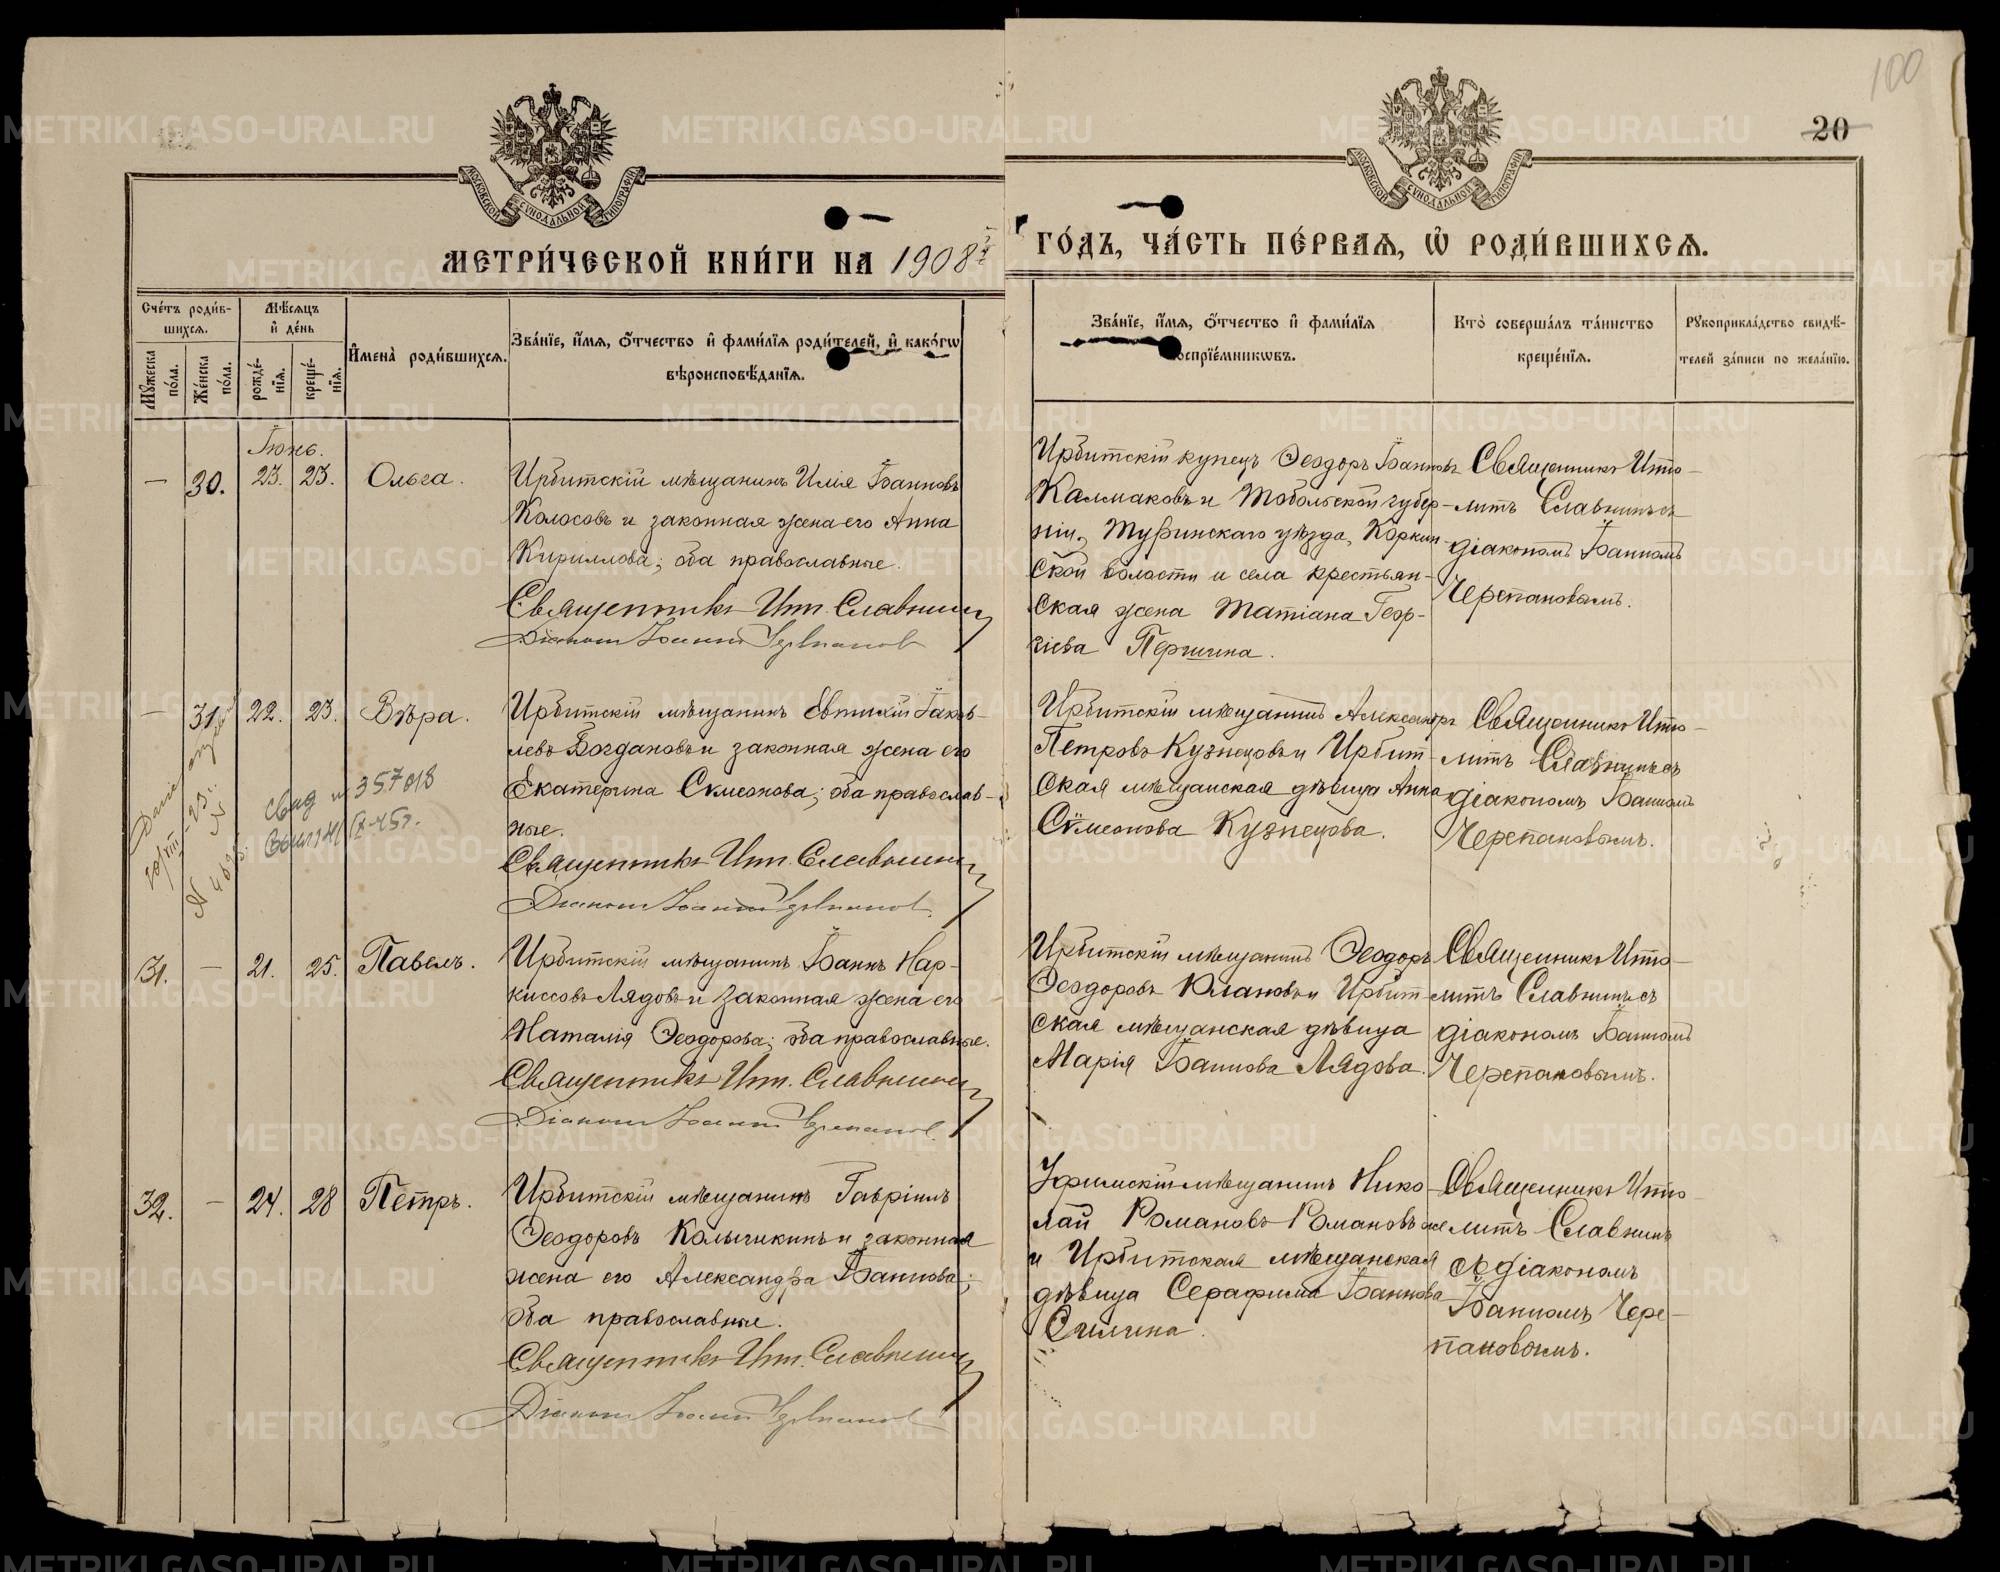 100
20
МОСКОВСКОЙ СѴНОДАЛЬНОЙ ТИПОГРАФІИ
МОСКОВСКОЙ СѴНОДАЛЬНОЙ ТИПОГРАФІИ
МЕТРИ́ЧЕСКОЙ КНИ́ГИ НА 1908й
ГО́ДЪ, ЧА́СТЬ ПЕ́РВАѦ, Ѡ РОДИ́ВШИХСѦ.
Сче́тъ роди́в-
шихсѧ.
Мꙋжеска по́ла.
Же́нска по́ла.
Мѣ́сѧцъ
и҆ де́нь
рожде́-
нїѧ.
креще́-
нїѧ.
И҆мена̀ роди́вшихсѧ.
Зва́нїе, и҆́мѧ, ѻ҆́тчество и҆ фами́лїѧ роди́телей, и҆ како́гѡ
вѣроисповѣ́данїѧ.
Зва́нїе, и҆́мѧ, ѻ҆́тчество и҆ фами́лїѧ
воспрїе́мникѡвъ.
Кто̀ соверша́лъ та́инство
креще́нїѧ.
Рꙋкоприкла́дство свидѣ́-
телей за́писи по жела́нїю.
Іюнь.
— 30. 23. 23. Ольга.
Ирбитскій мѣщанинъ Илія Іоанновъ
Колосовъ и законная жена его Анна
Кириллова; оба православные.
Священникъ Ип. Славнин
Діакон Іоанн Черепанов
Ирбитскій купецъ Ѳеодоръ Іоанновъ
Калмаковъ и Тобольской губер-
ніи, Туринскаго уѣзда, Коркин-
ской волости и села крестьян-
ская жена Татіана Геор-
гіева Першина.
Священникъ Иппо-
литъ Славнинъ съ
діакономъ Іоанномъ
Черепановымъ.
— 31. 22. 23. Вѣра.
Ирбитскій мѣщанинъ Евтихій Іаков-
левъ Богдановъ и законная жена его
Екатерина Сѵмеонова; оба православ-
ные.
Священникъ Ип. Славнин
Діакон Іоанн Черепанов
свид № 357818
Ирбитскій мѣщанинъ Александръ
Петровъ Кузнецовъ и Ирбит-
ская мѣщанская дѣвица Анна
Сѵмеонова Кузнецова.
Священникъ Иппо-
литъ Славнинъ съ
діакономъ Іоанномъ
Черепановымъ.
31. — 21. 25. Павелъ.
Ирбитскій мѣщанинъ Іоаннъ Нар-
киссовъ Лядовъ и законная жена его
Наталія Ѳеодорова; оба православные.
Священникъ Ип. Славнин
Діакон Іоанн Черепанов
Ирбитскій мѣщанинъ Ѳеодоръ
Ѳеодоровъ Улановъ и Ирбит-
ская мѣщанская дѣвица
Марія Іоаннова Лядова.
Священникъ Иппо-
литъ Славнинъ съ
діакономъ Іоанномъ
Черепановымъ.
32. — 24. 28 Петръ.
Ирбитскій мѣщанинъ Гавріилъ
Ѳеодоровъ Колычикинъ и законная
жена его Александра Іоаннова;
оба православные.
Священникъ Ип. Славнин
Діакон Іоанн Черепанов
Уфимскій мѣщанинъ Нико-
лай Романовъ Романовъ же
и Ирбитская мѣщанская
дѣвица Серафима Іоаннова
Смилина.
Священникъ Иппо-
литъ Славнинъ
съ діакономъ
Іоанномъ Чере-
пановымъ.